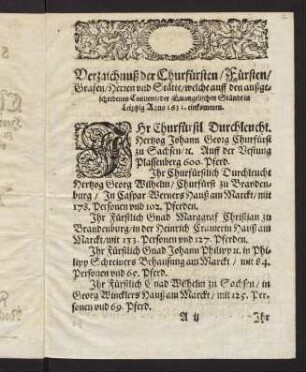 Verzaichnuß der Churfürsten/Fürsten/
Grafen/Herren vnd Stätte/welche auff den außge-
schribenen Convent/der Euangelischen Stände in
Leipzig Anno 1631. einkommen.
Ihr Churfürstl Durchleucht.
Hertzog Johann Georg Churfürst
zu Sachsen/ꝛc. Auff der Vestung
Plassenberg 600. Pferd.
Ihr Churfürstlich Durchleucht
Hertzog Georg Wilhelm/Churfürst zu Branden-
burg/In Caspar Werners Hauß am Marckt/mit
178. Personen vnd 102. Pferden.
Ihr Fürstlich Gnad Marggraf Christian zu
Brandenburg/in der Heinrich Cramerin Hauß am
Marckt/mit 133. Personen vnd 127. Pferden.
Ihr Fürstlich Gnad Johann Philips ꝛc. in Phi-
lipp Schreivers Behausung am Marckt/mit 84.
Personen vnd 65. Pferd.
Ihr Fürstlich Gnad Wilhelm zu Sachsen/in
Georg Wincklers Hauß am Marckt/mit 125. Per-
sonen vnd 69. Pferd.
A ij Ihr